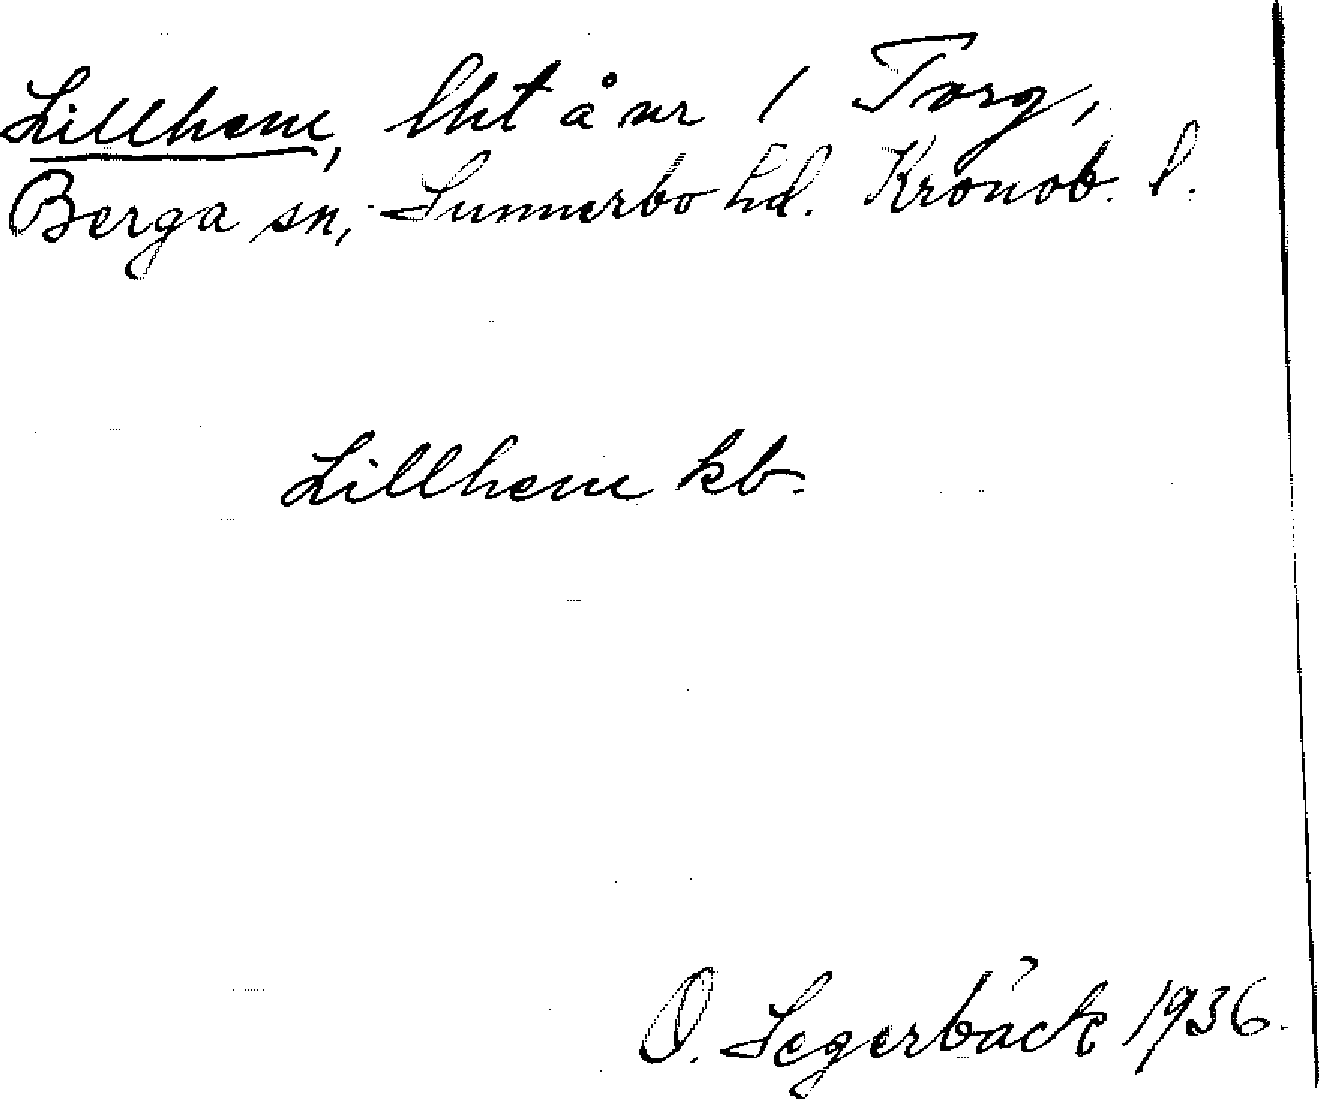 Lillhem, lht å nr 1 Torg,
Berga sn, Sunnerbo hd. Kronob. l.
Lillhem kb.
O. Segerbäck 1936.